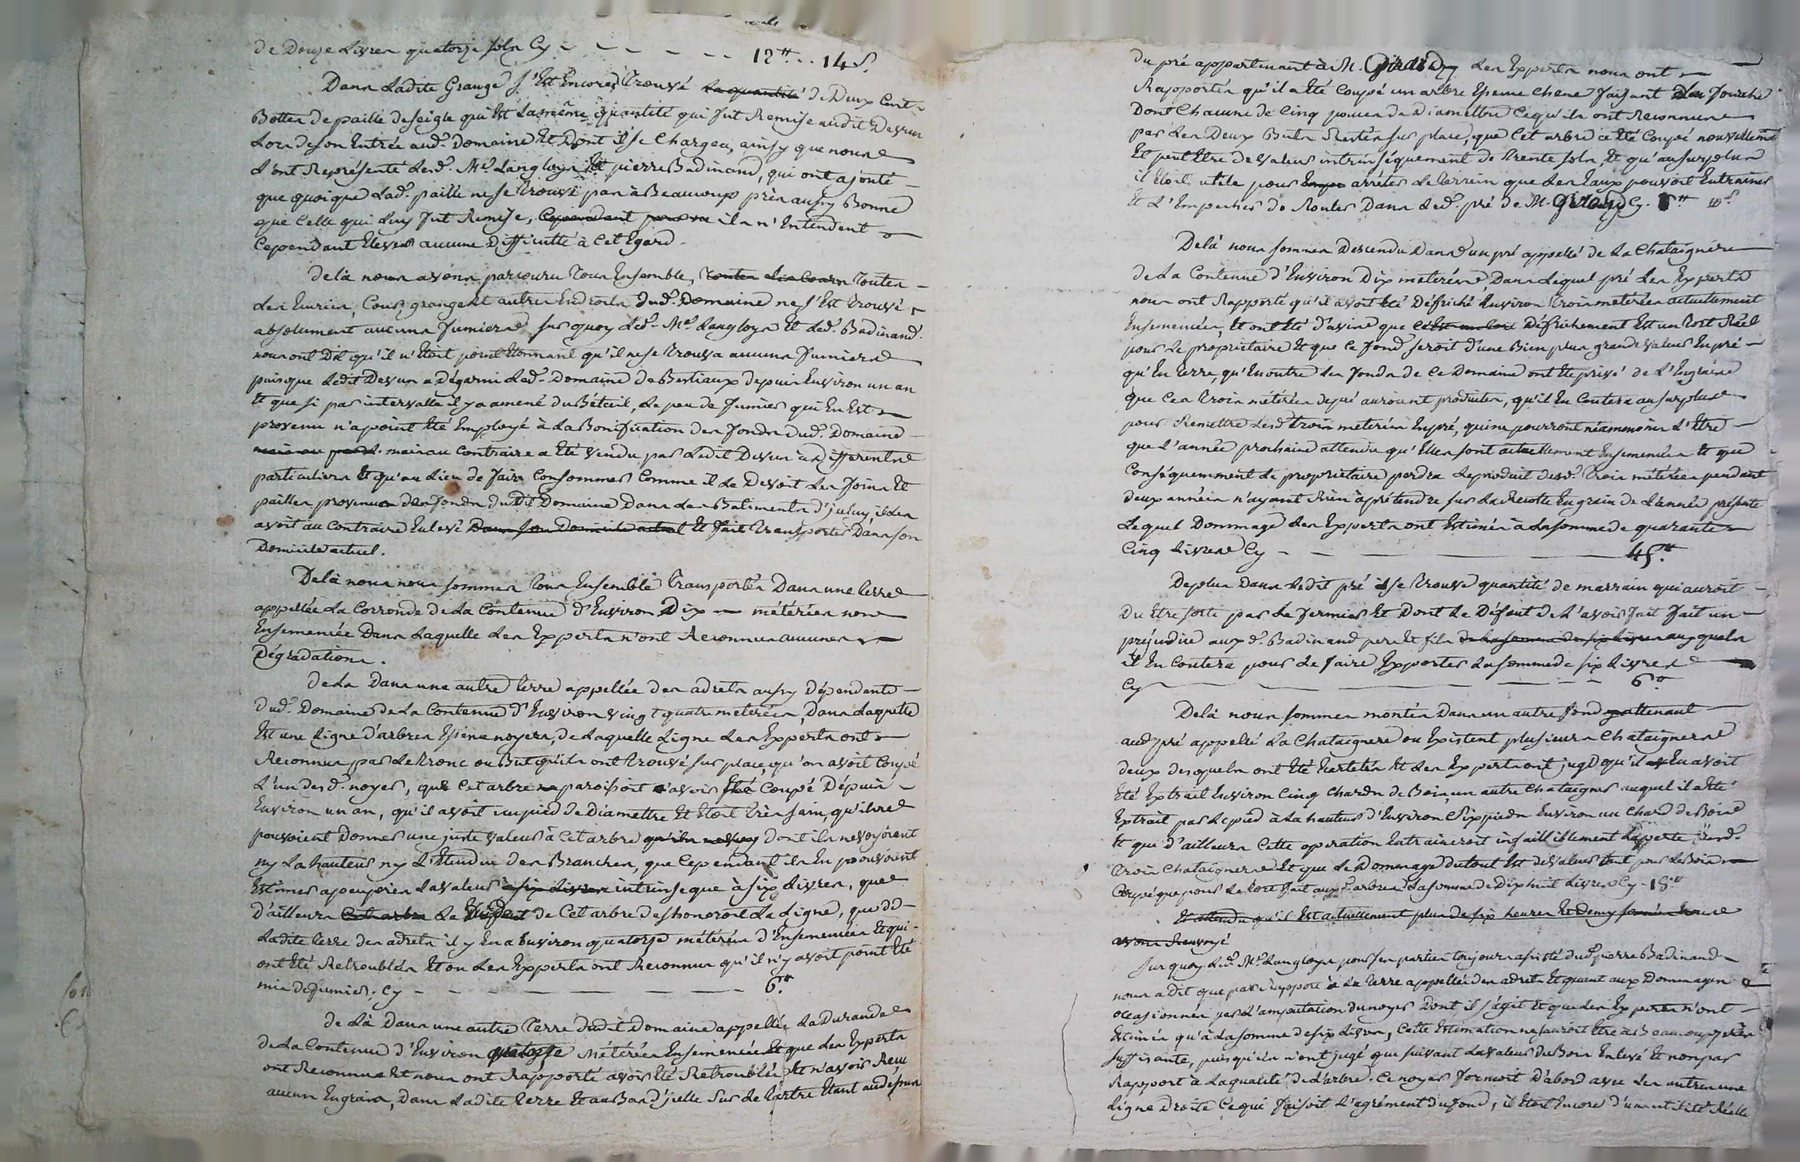 de Douze Livres quatorze sols Cy - - - - - - 12tt.. 14 s.
Dans Ladite Grange s'Est Encore Trouvé La quantité de Deux Cent
Bottes de paille de seigle qui Est La même quantité qui fut Remise audit Devun
Lors de son Entrée aud. Domaine Et Dont il se Chargea, ainsy que nous
L'ont Représenté Led. Me. Langloys Et pierre Badinand, qui ont ajouté
que quoique Lad. paille ne se trouve pas à Beaucoup près aussy Bonne
que Celle qui Luy fut Remise, Cependant ils n'Entendent
Cependant Elever aucune Difficulté à Cet Egard.
Delà nous avons parcouru Tous Ensemble, toutes Les Cours Toutes
Les Ecuries, Cours, granges Et autres Endroits Dud. Domaine ne s'Est Trouvé
absolument aucuns fumiers sur quoy Led. Me. Langloys Et Led. Badinand
nous ont Dit qu'il n'Etoit point Etonnant qu'il ne se Trouva aucuns fumiers
puisque Ledit Devun a Dégarni Led. Domaine de Bestiaux depuis Environ un an
Et que si par intervalle il y a amené du Béteil, Le peu de fumier qui En Est
provenu n'a point Eté Employé à La Bonification des fonds Dud. Domaine
mais au contraire a Eté Vendu par Ledit Devun à Differents
particuliers Et qu'au Lieu de faire Consommer Comme il Le Devoit Les foins Et
pailles provenus des fonds du Dit Domaine Dans Les Batiments d'jceluy, il Les
avoit au Contraire Enlevé Dans son Domicile actuel Et fait Transporter Dans son
Domicile actuel.
Delà nous nous sommes Tous Ensemble Transportés Dans une Terre
appellée La Corronde de La Contenue d'Environ Dix métérées non
Ensemencée Dans Laquelle Les Experts n'ont Reconnus aucunes
Dégradations.
De La Dans une autre Terre appellée des adrets aussy Dépendante
Dud. Domaine de La Contenue d'Environ vingt quatre météreés, Dans Laquelle
Est une Ligne d'arbres Essence noyers, de Laquelle Ligne Les Experts ont
Reconnus par Le tronc ou But qu'ils ont trouvé sur place, qu'on avoit Coupé
L'un desd. noyers, que Cet arbre paroissoit avoir Eté Coupé Dépuis
Environ un an, qu'il avoit un pied de Diamettre Et Etoit très sain, qu'ils ne
pouvoient Donner une juste Valeur à Cet arbre dont ils ne voyoient
ny La hauteur ny L'Etendue des Branches, que Cependant ils En pouvoient
Estimer La Valeur à six Livres intrinseque à six Livres, que
D'ailleurs Cet arbre Le de Cet arbre deshonoroit La Ligne, que dd
Ladite Terre des adrets il y En a Environ quatorze météreés d'Ensemencées Et qui
ont Eté Retroublés Et ou Les Experts ont Reconnus qu'il n'y avoit point Eté
mis de fumier, Cy - - - - - - - 6tt
De Là Dans une autre Terre dudit Domaine appellée La Durande
de La Contenue d'Environ quatorze Météreés Ensemencée Et que Les Experts
ont Reconnus Et nous ont Rapporté avoir Eté Retroublée Et n'avoir Reçu
aucun Engrais, Dans Ladite Terre Et au Bas d'jcelle Sur Le Tertre Etant audessus
du pré appartenant à M. Les Experts nous ont
Rapporté qu'il a Eté Coupé un arbre Essence Chene faisant
Dont Chacune de Cinq pouces de Diamettre Ce qu'ils ont Reconnus
par Les Deux Buts Restés sur place, que Cet arbre a Eté Coupé nouvellement
Et peut Etre de Valeur intrinséquement de trente sols Et qu'au surplus
il Etoit utile pour arrêter Le terrein que Les Eaux pouvoit Entrainer
Et L'Empecher de Rouler Dans Led. pré de M. Cy. 1tt 10s
Delà nous sommes Descendu Dans un pré appellé de La Chataignere
de La Contenue d'Environ Dix météreés Dans Lequel pré Les Experts
nous ont Rapporté qu'il avoit Eté Défriché Environ trois météreés actuellement
Ensemencées, Et ont Eté d'avis que Défrichement Est un Tort Réel
pour Le proprietaire Et que Ce fond seroit d'une Bien plus grande Valeur En pré
qu'En terre, qu'En outre Les fonds de Ce Domaine ont Eté privé de L'Engrais
que Ces trois météreés de pré auroient produites, qu'il En Coutera au surplus
pour Remettre Lesd. trois météreés En pré, qui ne pourront néammoins L'Etre
que L'année prochaine attendu qu'Elles sont actuellement Ensemencées Et que
Conséquemment Le proprietaire perdra Le produit desd. Trois météreés pendant
deux années n'ayant Rien à prétendre sur La Récolte En grain de L'année présente
Lequel Dommage Les Experts ont Estimés à La somme de quarante
Cinq Livres Cy - - - - - - 45tt
De plus Dans Ledit pré se Trouve quantité de marrain qui auroit
Du Etre sortie par Le fermier Et Dont Le Défaut de L'avoir fait fait un
préjudice auxd. Badinand pere Et fils de La somme de six Livres auxquels
il En Coutera pour Le faire Exporter La somme de six Livres
Cy - - - - - - 6tt
Delà nous sommes montés Dans un autre fond attenant
aud. pré appellé La Chataignere ou Existent plusieurs Chataigners
deux desquels ont Eté Ecartelés Et Les Experts ont jugé qu'il En avoit
Eté Extrait Environ Cinq Chards de Bois, un autre Chataigner auquel il a Eté
Extrait par Le pied à La hauteur d'Environ Six pieds Environ un Chard de Bois
Et que d'ailleurs Cette operation Entraineroit infailliblement La perte desd.
Trois Chataigners Et que Le Dommage du tout Est de Valeur tant pour Le Bois
Coupé que pour Le tort fait auxd. arbres La somme de Dix huit Livres Cy - 18tt
Et attendu qu'il Est actuellement plus de six heures Et Demy nous
avons Renvoyé
Sur quoy Led. Me. Langloys pour ses parties toujours assisté dud. pierre Badinand
nous a Dit que par Rapport à La Terre appellée des adrets Et quant aux Dommages
occasionnés par L'amputation du noyer Dont il s'agit Et que Les Experts n'ont
Estimés qu'à La somme de six Livres, Cette Estimation ne sauroit Etre à Beaucoup près
suffisante, puisqu'ils n'ont jugé que suivant La Valeur du Bois Enlevé Et non par
Rapport à La qualité de L'arbre. Ce noyer formoit D'abord avec Les autres une
Ligne Droite Ce qui faisoit L'agrément du fond, il Etoit Encore d'une utilité Réelle